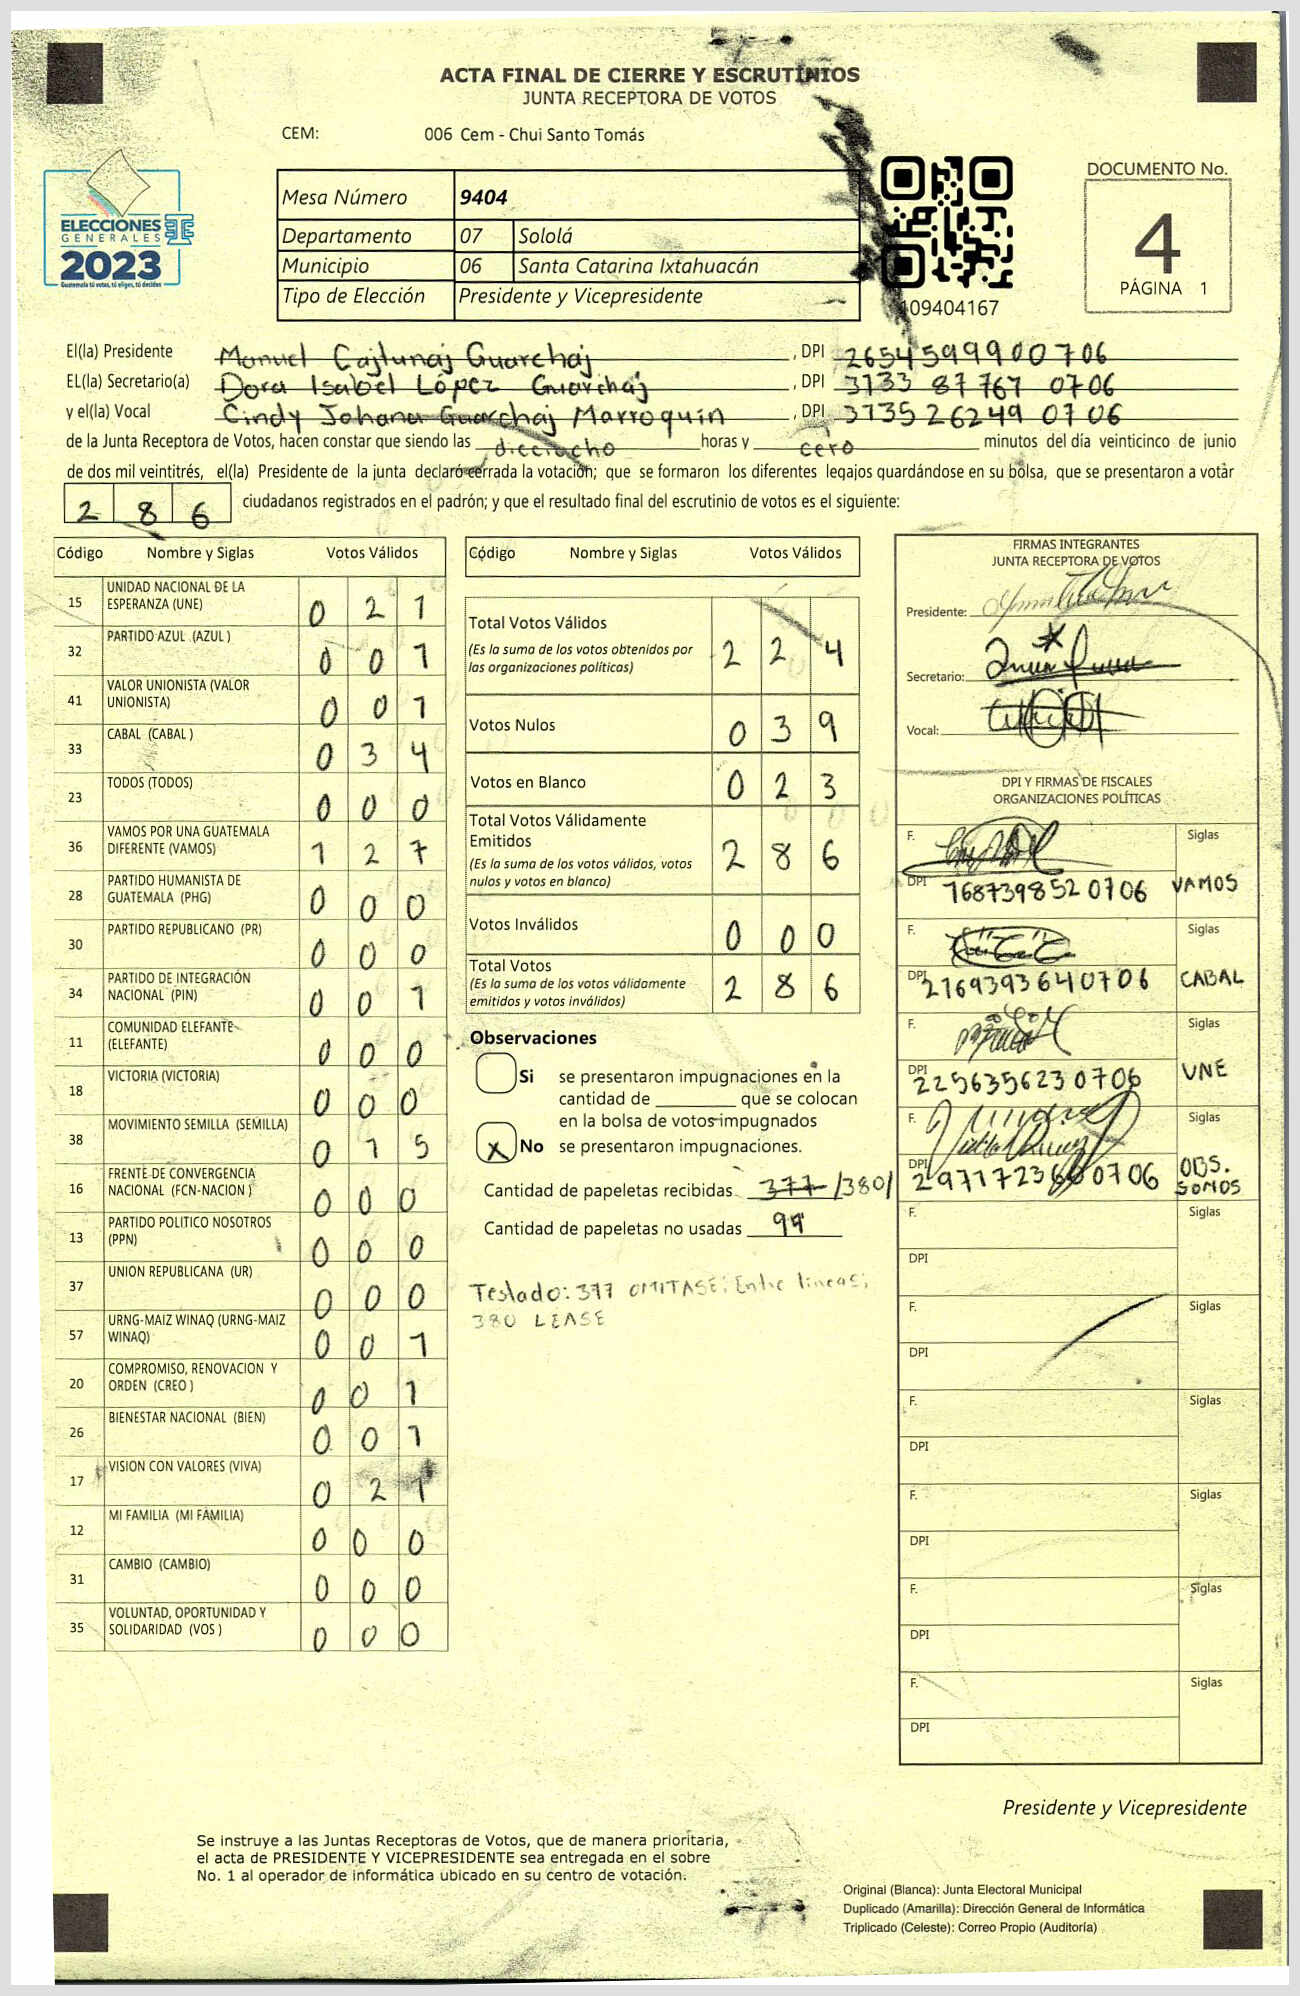 ACTA FINAL DE CIERRE Y ESCRUTINIOS
JUNTA RECEPTORA DE VOTOS
CEM: 006 Cem - Chui Santo Tomás
ELECCIONES
GENERALES
2023
Guatemala tú votas, tú eliges, tú decides
Mesa Número 9404
Departamento 07 Sololá
Municipio 06 Santa Catarina Ixtahuacán
Tipo de Elección Presidente y Vicepresidente
109404167
DOCUMENTO No.
4
PÁGINA 1
El(la) Presidente Manuel Cajtunaj Guarchaj, DPI 2654599900706
EL(la) Secretario(a) Dora Isabel López Guarchaj, DPI 3733 87767 0706
y el(la) Vocal Cindy Johana Guarchaj Marroquín, DPI 3735262490706
de la Junta Receptora de Votos, hacen constar que siendo las dieciocho horas y cero minutos del día veinticinco de junio
de dos mil veintitrés, el(la) Presidente de la junta declaró cerrada la votación; que se formaron los diferentes legajos guardándose en su bolsa, que se presentaron a votar
286 ciudadanos registrados en el padrón; y que el resultado final del escrutinio de votos es el siguiente:
Código Nombre y Siglas Votos Válidos
15 UNIDAD NACIONAL DE LA ESPERANZA (UNE) 0 2 1
32 PARTIDO AZUL (AZUL ) 0 0 1
41 VALOR UNIONISTA (VALOR UNIONISTA) 0 0 1
33 CABAL (CABAL ) 0 3 4
23 TODOS (TODOS) 0 0 0
36 VAMOS POR UNA GUATEMALA DIFERENTE (VAMOS) 1 2 7
28 PARTIDO HUMANISTA DE GUATEMALA (PHG) 0 0 0
30 PARTIDO REPUBLICANO (PR) 0 0 0
34 PARTIDO DE INTEGRACIÓN NACIONAL (PIN) 0 0 1
11 COMUNIDAD ELEFANTE (ELEFANTE) 0 0 0
18 VICTORIA (VICTORIA) 0 0 0
38 MOVIMIENTO SEMILLA (SEMILLA) 0 1 5
16 FRENTE DE CONVERGENCIA NACIONAL (FCN-NACION ) 0 0 0
13 PARTIDO POLITICO NOSOTROS (PPN) 0 0 0
37 UNION REPUBLICANA (UR) 0 0 0
57 URNG-MAIZ WINAQ (URNG-MAIZ WINAQ) 0 0 1
20 COMPROMISO, RENOVACION Y ORDEN (CREO ) 0 0 1
26 BIENESTAR NACIONAL (BIEN) 0 0 1
17 VISION CON VALORES (VIVA) 0 2 1
12 MI FAMILIA (MI FAMILIA) 0 0 0
31 CAMBIO (CAMBIO) 0 0 0
35 VOLUNTAD, OPORTUNIDAD Y SOLIDARIDAD (VOS ) 0 0 0
Código Nombre y Siglas Votos Válidos
Total Votos Válidos 2 2 4
(Es la suma de los votos obtenidos por
las organizaciones políticas)
Votos Nulos 0 3 9
Votos en Blanco 0 2 3
Total Votos Válidamente
Emitidos 2 8 6
(Es la suma de los votos válidos, votos
nulos y votos en blanco)
Votos Inválidos 0 0 0
Total Votos 2 8 6
(Es la suma de los votos válidamente
emitidos y votos inválidos)
Observaciones
Si se presentaron impugnaciones en la
cantidad de ________ que se colocan
en la bolsa de votos impugnados
X No se presentaron impugnaciones.
Cantidad de papeletas recibidas 377 /380/
Cantidad de papeletas no usadas 94
Testado: 377 OMITASE; Entre lineas;
380 LEASE
FIRMAS INTEGRANTES
JUNTA RECEPTORA DE VOTOS
Presidente:
Secretario:
Vocal:
DPI Y FIRMAS DE FISCALES
ORGANIZACIONES POLÍTICAS
F. Siglas
DPI 1687398520706 VAMOS
F. Siglas
DPI 2169393640706 CABAL
F. Siglas
DPI 2256356230706 UNE
F. Siglas
DPI 2971723600706 OBS. SOMOS
F. Siglas
DPI
F. Siglas
DPI
F. Siglas
DPI
F. Siglas
DPI
F. Siglas
DPI
F. Siglas
DPI
Presidente y Vicepresidente
Se instruye a las Juntas Receptoras de Votos, que de manera prioritaria,
el acta de PRESIDENTE Y VICEPRESIDENTE sea entregada en el sobre
No. 1 al operador de informática ubicado en su centro de votación.
Original (Blanca): Junta Electoral Municipal
Duplicado (Amarilla): Dirección General de Informática
Triplicado (Celeste): Correo Propio (Auditoría)